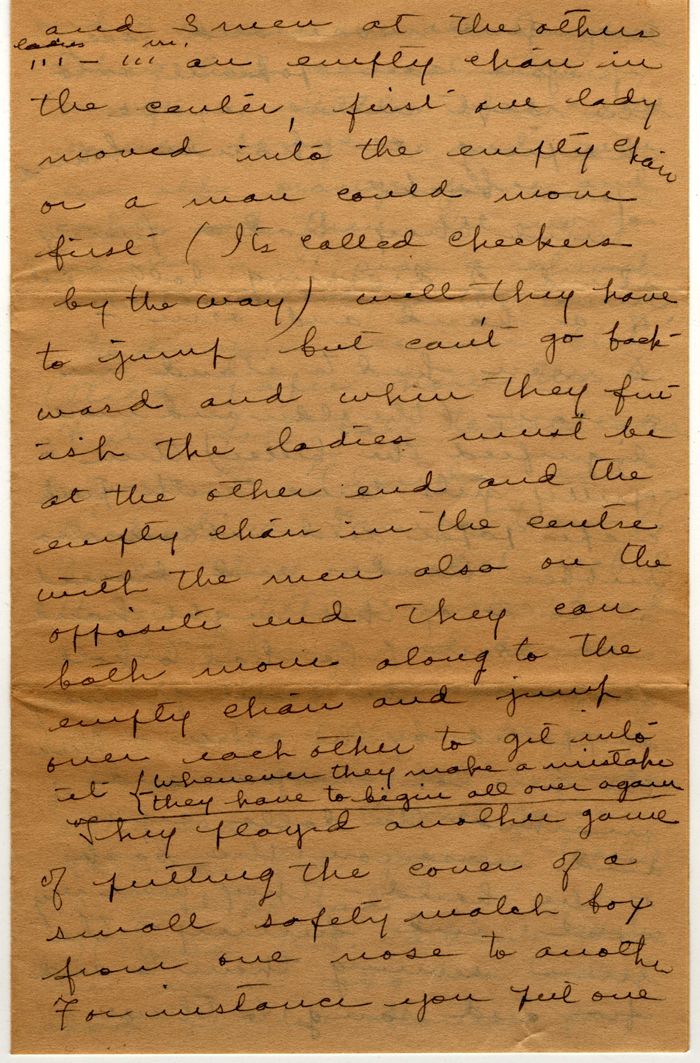 and 3 men at the others
ladies m.
''' – ''' an empty chair in
the center, first one lady
moved into the empty chair
or a man could move
first (Its called checkers
by the way) well they have
to jump but can't go back-
ward and when they fin-
ish the ladies must be
at the other end and the
empty chair in the centre
with the men also on the
opposite end They can
both move along to the
empty chair and jump
over each other to get into
it {whenever they make a mistake
they have to begin all over again
They played another game
of putting the cover of a
small safety match box
from one nose to another
For instance you put one